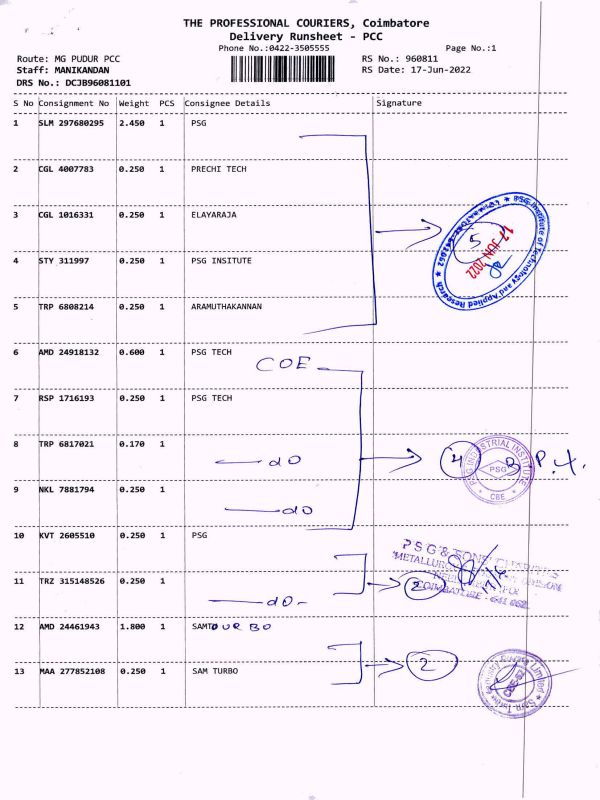 THE PROFESSIONAL COURIERS, Coimbatore
Delivery Runsheet - PCC
Phone No.:0422-3505555 Page No.:1
Route: MG PUDUR PCC RS No.: 960811
Staff: MANIKANDAN RS Date: 17-Jun-2022
DRS No.: DCJB96081101
S No Consignment No Weight PCS Consignee Details Signature
1 SLM 297680295 2.450 1 PSG
2 CGL 4007783 0.250 1 PRECHI TECH
3 CGL 1016331 0.250 1 ELAYARAJA
5
17 JUN 2022
PSG Institute of Technology and Applied Research
4 STY 311997 0.250 1 PSG INSITUTE
5 TRP 6808214 0.250 1 ARAMUTHAKANNAN
6 AMD 24918132 0.600 1 PSG TECH
COE
7 RSP 1716193 0.250 1 PSG TECH
8 TRP 6817021 0.170 1
do
4
PSG INDUSTRIAL INSTITUTE
PSG
CBE
9 NKL 7881794 0.250 1
do
10 KVT 2605510 0.250 1 PSG
PSG & SONS' CHARITIES
11 TRZ 315148526 0.250 1
2
COIMBATORE
do-
12 AMD 24461943 1.800 1 SAMTOURBO
2
13 MAA 277852108 0.250 1 SAM TURBO